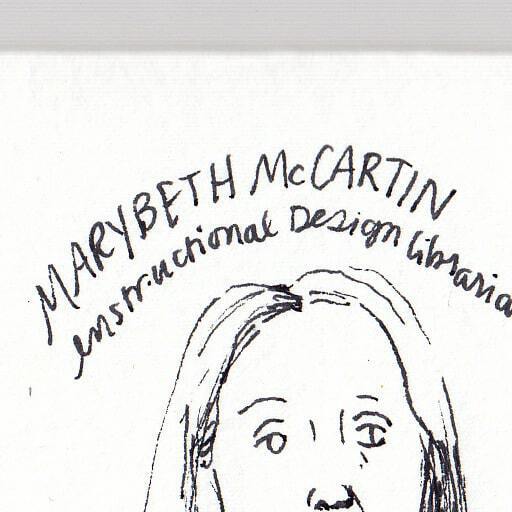 MARYBETH McCARTIN
instructional Design libraria